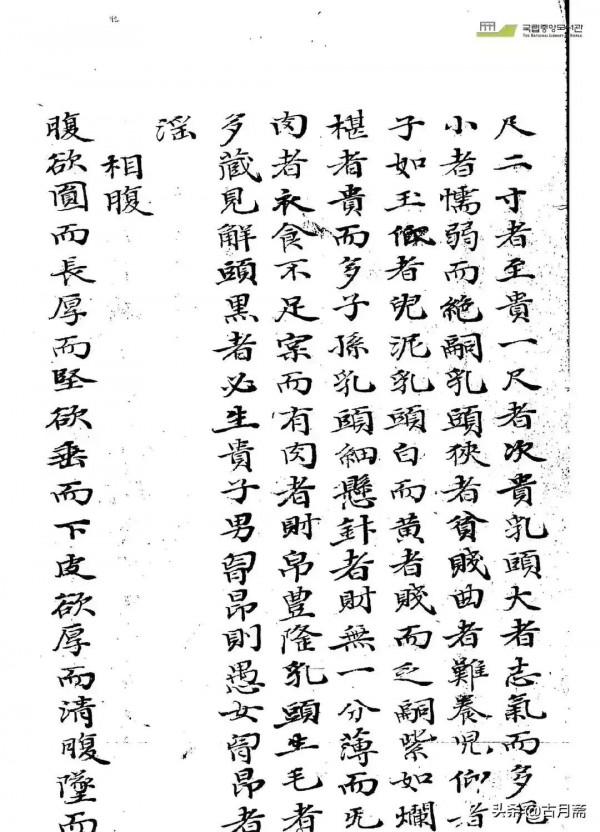 국립중앙도서관
THE NATIONAL LIBRARY OF KOREA
尺二寸者至貴一尺者次貴乳頭大者志氣而多
小者懦弱而絶嗣乳頭狹者貧賤曲者難養児仰者
子如玉低者児泥乳頭白而黄者賤而乏嗣紫如爛
椹者貴而多子孫乳頭細懸針者財無一分薄而无
肉者衣食不足実而有肉者財帛豊隆乳頭生毛者
多蔵見解頭黒者必生貴子男胷昂則愚女胷昂者
淫
相腹
腹欲圓而長厚而堅欲垂而下皮欲厚而清腹墜而
头条@古月斋